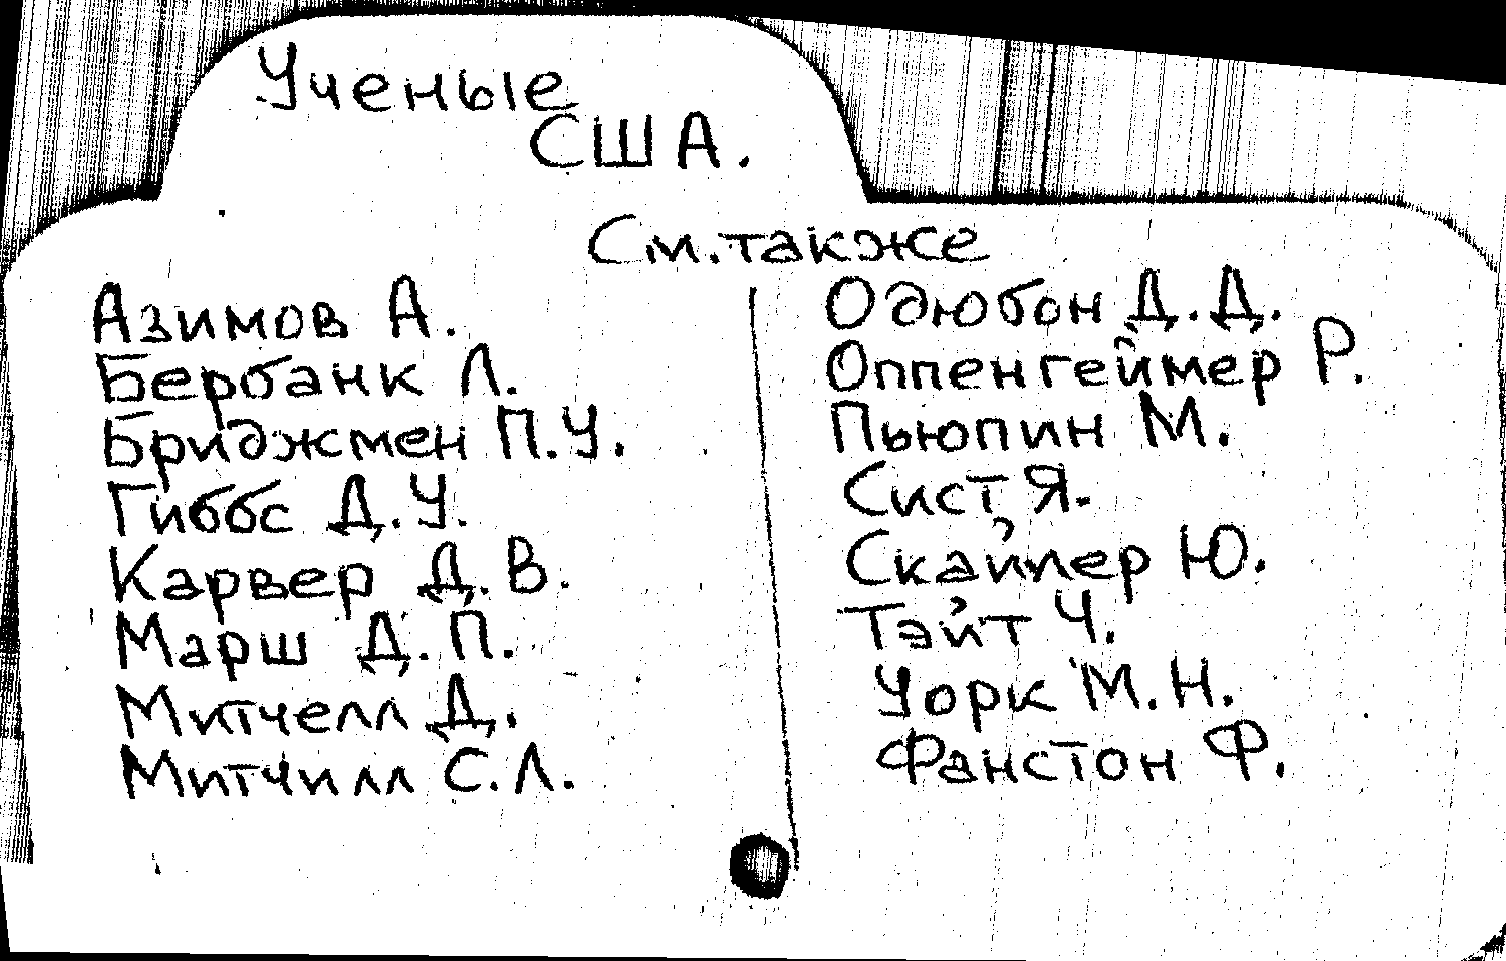 Ученые
США.
См. также
Азимов А.
Бербанк Л.
Бриджмен П.У.
Гиббс Д.У.
Карвер Д.В.
Марш Д.П.
Митчелл Д.
Митчилл С.Л.
Одюбон Д.Д.
Оппенгеймер Р.
Пьюпин М.
Сист Я.
Скайлер Ю.
Тэйт Ч.
Уорк М.Н.
Фанстон Ф.